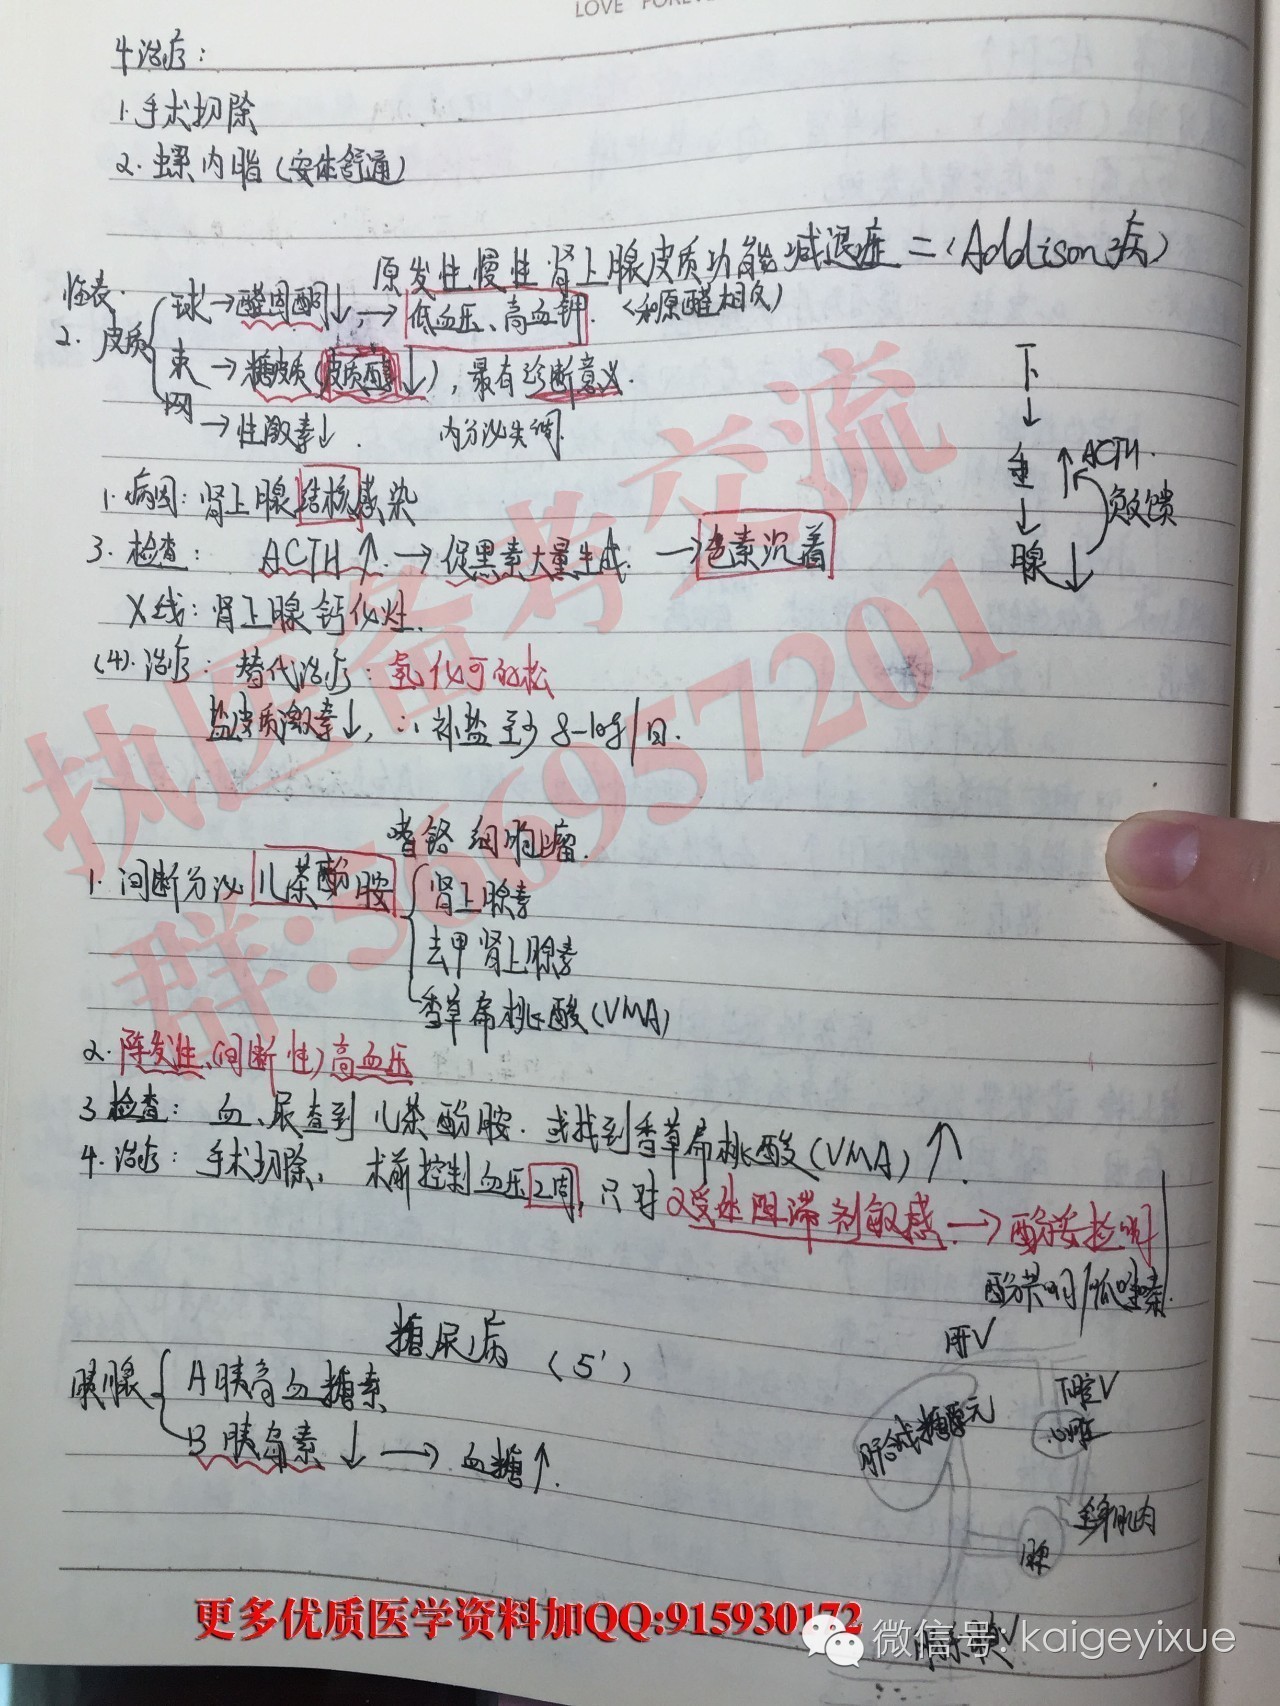 LOVE FOREVE
4治疗:
1.手术切除
2.螺内脂(安体舒通)
原发性慢性肾上腺皮质功能减退症=(Addison病)
临表.
2.皮质
球→醛固酮↓→低血压、高血钾. (和原醛相反)
束→糖皮质(皮质醇↓),最有诊断意义.
网→性激素↓. 内分泌失调.
下
↓
垂 ↑ACTH.
↓ 负反馈
腺↓
1.病因:肾上腺结核感染
3.检查: ACTH↑→促黑素大量生成→色素沉着
X线:肾上腺钙化灶.
(4).治疗:替代治疗:氢化可的松
盐皮质激素↓,∴补盐至少8-10g/日.
嗜铬细胞瘤.
1.间断分泌儿茶酚胺
肾上腺素
去甲肾上腺素
香草扁桃酸(VMA)
2.阵发性(间断性)高血压
3.检查:血、尿查到儿茶酚胺.或找到香草扁桃酸(VMA)↑.
4.治疗:手术切除,术前控制血压2周,只对α受体阻滞剂敏感→酚妥拉明
酚苄明/哌唑嗪.
糖尿病 (5')
胰腺
A胰高血糖素
B胰岛素↓→血糖↑.
肝V
下腔V
心脏
肝合成糖原元
全身肌肉
胰
执医备考交流
群:566957201
更多优质医学资料加QQ:915930172
微信号: kaigeyixue